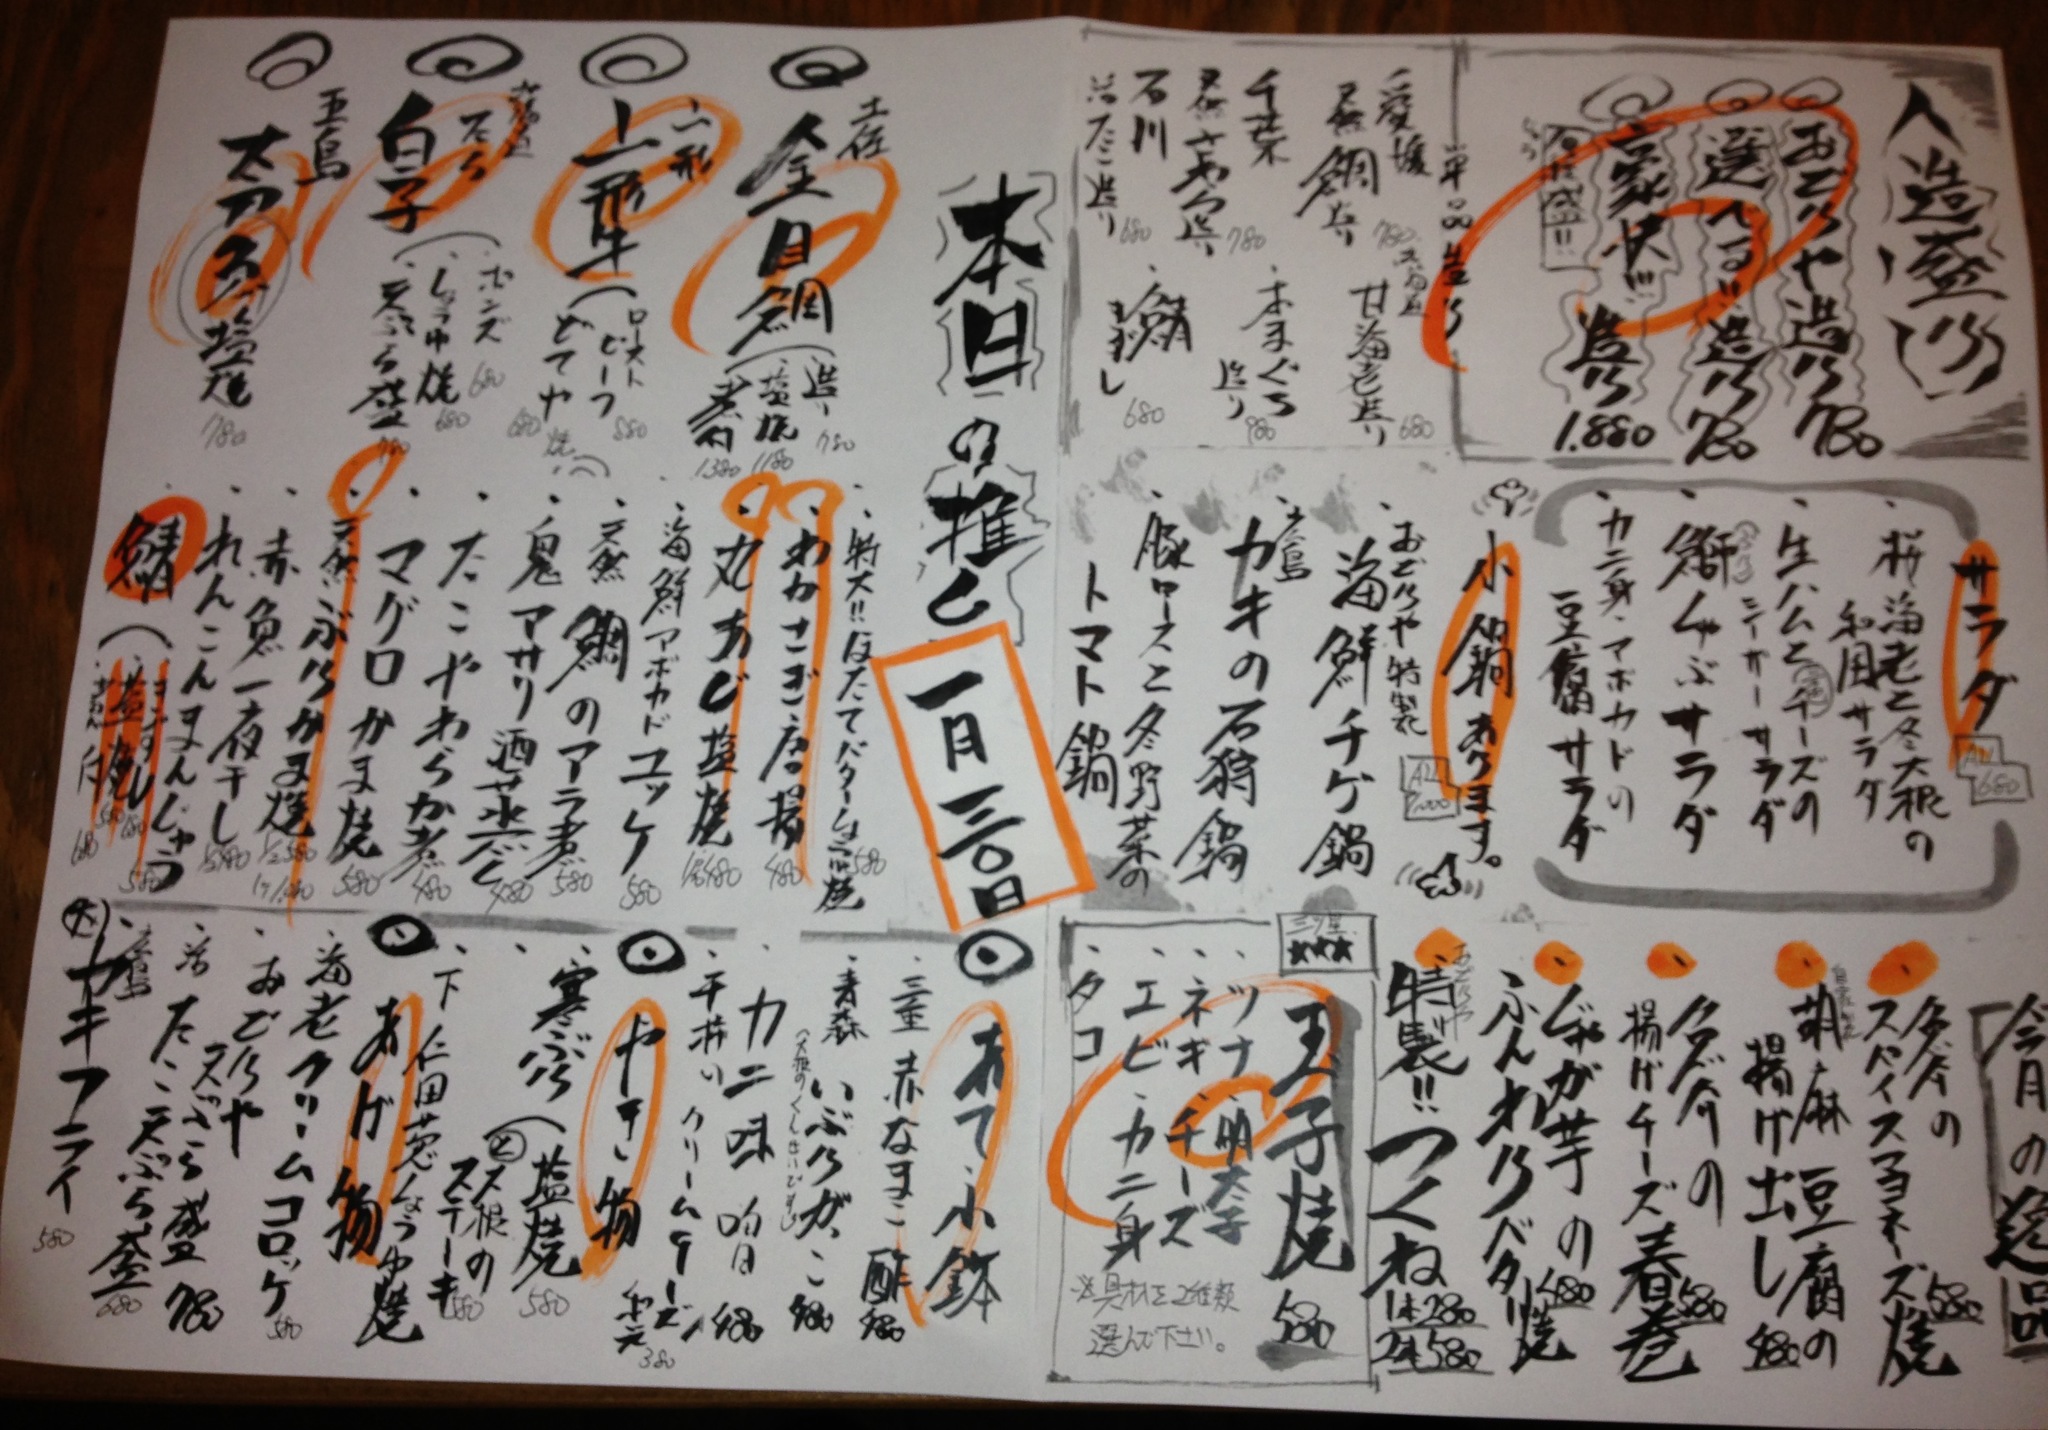 造盛り
おどりや造り 780
選べる!! 造り 780
豪快!!! 造り 1.880
単品造り
愛媛 天然 鯛造り 780
千葉 天然さわら造り 780
石川 活たこ造り 680
甘海老造り 680
本まぐろ造り 980
鯖きずし 680
サラダ ALL 680
桜海老と冬大根の和風サラダ
生ハムとチーズのシーザーサラダ
鰤しゃぶサラダ
カニ身・アボカドの豆腐サラダ
小鍋あります。
おどりや特製
海鮮チゲ鍋
広島 カキの石狩鍋
豚ロースと冬野菜のトマト鍋
今月の逸品
スペイスマヨネーズ焼 580
自家製 胡麻豆腐の揚げ出し 480
揚げチーズ春巻 580
じゃが芋のふんわりバター焼 480
おどりや特製!! つくね 1本280 2本580
玉子焼 580
ツナ・明太子
ネギ・チーズ
エビ・カニ身
タコ
※具材を2種類選んで下さい。
本日の推し
一月三〇日
土佐 金目鯛 (造り 780 塩焼 1180 煮付 1380
山形 山形牛 (ローストビーフ 880 どてや 680
たら 白子 (ポンズ 680 しょうゆ焼 680 天ぷら盛 780
五島 太刀魚塩焼 780
特大!!ほたてバターしょうゆ焼 580
わかさぎ唐揚 480
丸あじ塩焼 480
海鮮アボカドユッケ 580
天然 鯛のアラ煮 580
鬼アサリ酒蒸し 480
たこやわらか煮 480
マグロかま焼 580
天然ぶりかま焼
赤魚一夜干し
れんこんまんじゅう 580
鯖 (きずし 680 塩焼 580
あて小鉢
三重 赤なまこ酢 480
青森 いぶりがっこ 480
カニ味噌 480
干柿とクリームチーズ 380
やき物
寒ぶり (塩焼 580 大根のステーキ 580
下仁田葱しょうゆ焼
あげ物
海老クリームコロッケ 580
おどりや天ぷら盛 780
活たこ天ぷら盛 680
広島 カキフライ 580